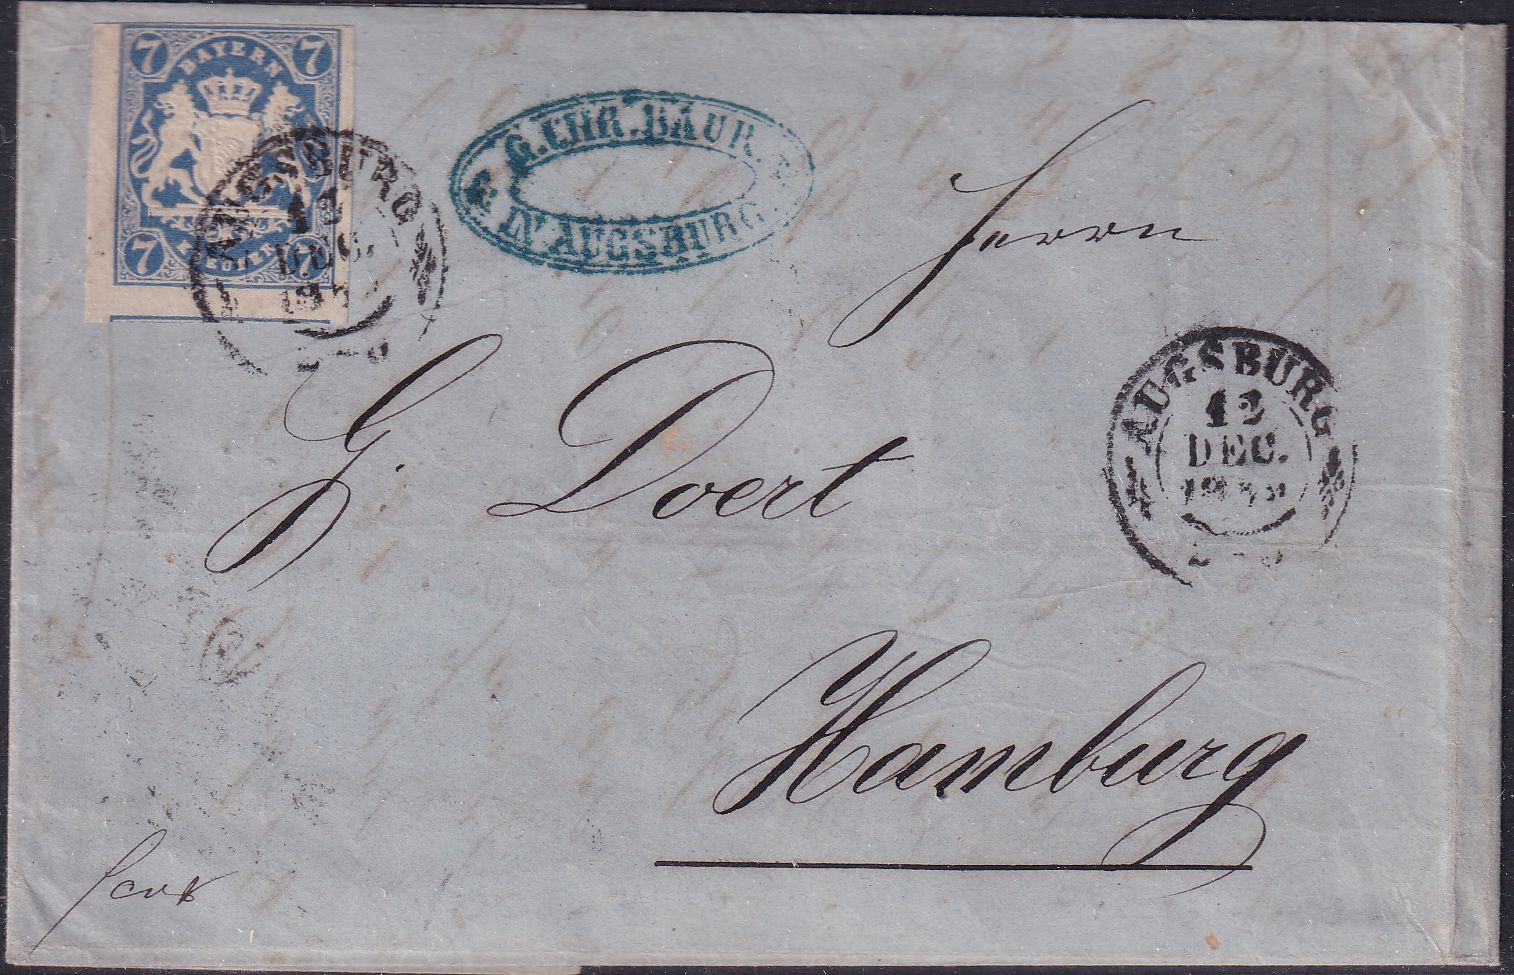 7 BAYERN 7
7 7
AUGSBURG
12
DEC.
G. CHR. BAUR.
IN AUGSBURG.
Herrn
G. Doert
Hamburg
AUGSBURG
12
DEC.
franco